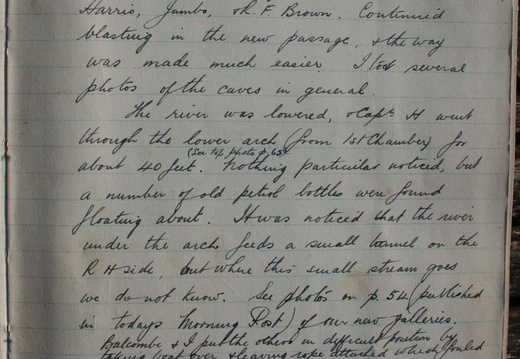 Harris, Jumbo, & R. F. Brown. Continued
blasting in the new passage, & the way
was made much easier. I took several
photos of the caves in general.
The river was lowered, & Capt H went
through the lower arch (from 1st Chamber) for
(See top photo p. 65)
about 40 feet. Nothing particular noticed, but
a number of old petrol bottles were found
floating about. It was noticed that the river
under the arch feeds a small tunnel on the
R H side, but where this small stream goes
we do not know. See photos on p. 54 (published
in todays Morning Post) of our new galleries.
Balcombe & I put the others in difficult position by
taking boat over & leaving rope attached which fouled